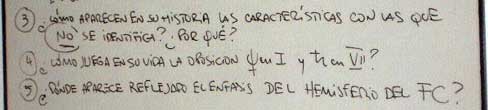 ③ ¿CÓMO APARECEN EN SU HISTORIA LAS CARACTERÍSTICAS CON LAS QUE
NO SE IDENTIFICA? ¿POR QUÉ?
④ ¿CÓMO JUEGA EN SU VIDA LA OPOSICIÓN ♆ en I y ♄ en VII?
⑤ ¿DÓNDE APARECE REFLEJADO EL ÉNFASIS DEL HEMISFERIO DEL FC?